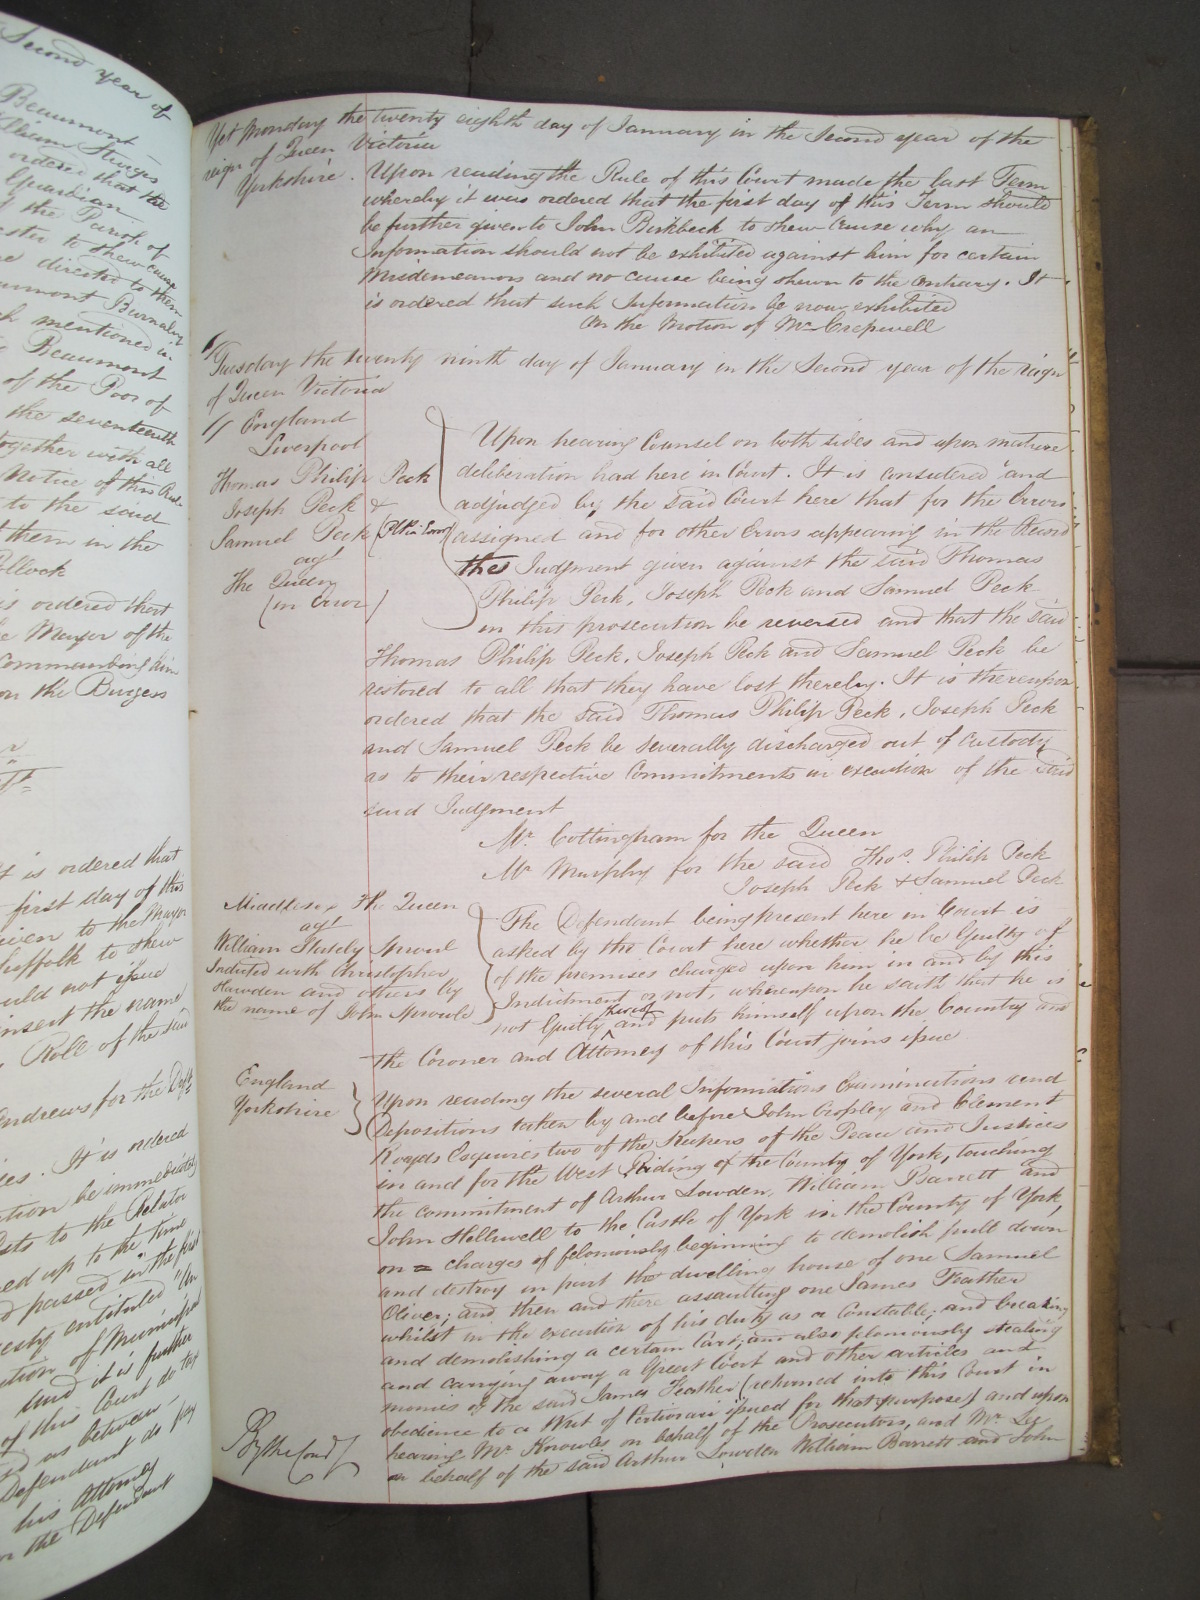 Second year of
Beaumont
William Sturges
ordered that the
Guardian
the Parish of
to shew cause
directed to them
Beaumont Burnaby
mentioned in
Beaumont
of the Poor of
the seventeenth
together with all
Notice of this Rule
to the said
them in the
Pollock
is ordered that
the Mayor of the
Commanding him
on the Burgess
It is ordered that
first day of this
given to the Mayor
Suffolk to shew
should not issue
insert the name
Roll of the said
Andrews for the Deft
It is ordered
be immediately
Costs to the Relator
up to the time
passed in the first
intituled "An
of Municipal
And it is further
of this Court do tax
as between
Defendant do pay
his Attorney
the Defendant
Yet Monday the twenty eighth day of January in the Second year of the
reign of Queen Victoria
Yorkshire. Upon reading the Rule of this Court made the last Term
whereby it was ordered that the first day of this Term should
be further given to John Birkbeck to shew cause why an
Information should not be exhibited against him for certain
Misdemeanors and no cause being shewn to the contrary. It
is ordered that such Information be now exhibited
On the Motion of Mr Creswell
Tuesday the twenty ninth day of January in the Second year of the reign
of Queen Victoria
England
Liverpool
Thomas Philip Peck
Joseph Peck &
Samuel Peck (Pltfs in Error)
agt
The Queen
(in Error)
Upon hearing Counsel on both sides and upon mature
deliberation had here in Court. It is considered and
adjudged by the said Court here that for the Errors
assigned and for other Errors appearing in the Record
the Judgment given against the said Thomas
Philip Peck, Joseph Peck and Samuel Peck
in this prosecution be reversed and that the said
Thomas Philip Peck, Joseph Peck and Samuel Peck be
restored to all that they have lost thereby. It is thereupon
ordered that the said Thomas Philip Peck, Joseph Peck
and Samuel Peck be severally discharged out of custody
as to their respective Commitments in execution of the said
said Judgment
Mr. Cottingham for the Queen
Mr Murphy for the said Thos. Philip Peck
Joseph Peck & Samuel Peck
Middlesex The Queen
agt
William Study Sproul
Indicted with Christopher
Hawden and others by
the name of John Sproule
The Defendant being present here in Court is
asked by the Court here whether he be Guilty of
of the premises charged upon him in and by this
Indictment or not, whereupon he saith that he is
not Guilty thereof and puts himself upon the Country and
the Coroner and Attorney of this Court joins issue
England
Yorkshire
Upon reading the several Informations Examinations and
Depositions taken by and before John Cropley and Clement
Royds Esquires two of the Keepers of the Peace and Justices
in and for the West Riding of the County of York, touching
the commitment of Arthur Lowden, William Barrett and
John Helliwell to the Castle of York in the County of York,
on charges of feloniously beginning to demolish pull down
and destroy in part the dwelling house of one Samuel
Oliver; and then and there assaulting one James Feather
whilst in the execution of his duty as a Constable; and breaking
and demolishing a certain Cart; and also feloniously stealing
and carrying away a Great Coat and other articles and
monies of the said James Feather (returned into this Court in
obedience to a Writ of Certiorari issued for that purpose) and upon
hearing Mr. Knowles on behalf of the Prosecutors, and Mr. Lee
on behalf of the said Arthur Lowden William Barrett and John
By the Court